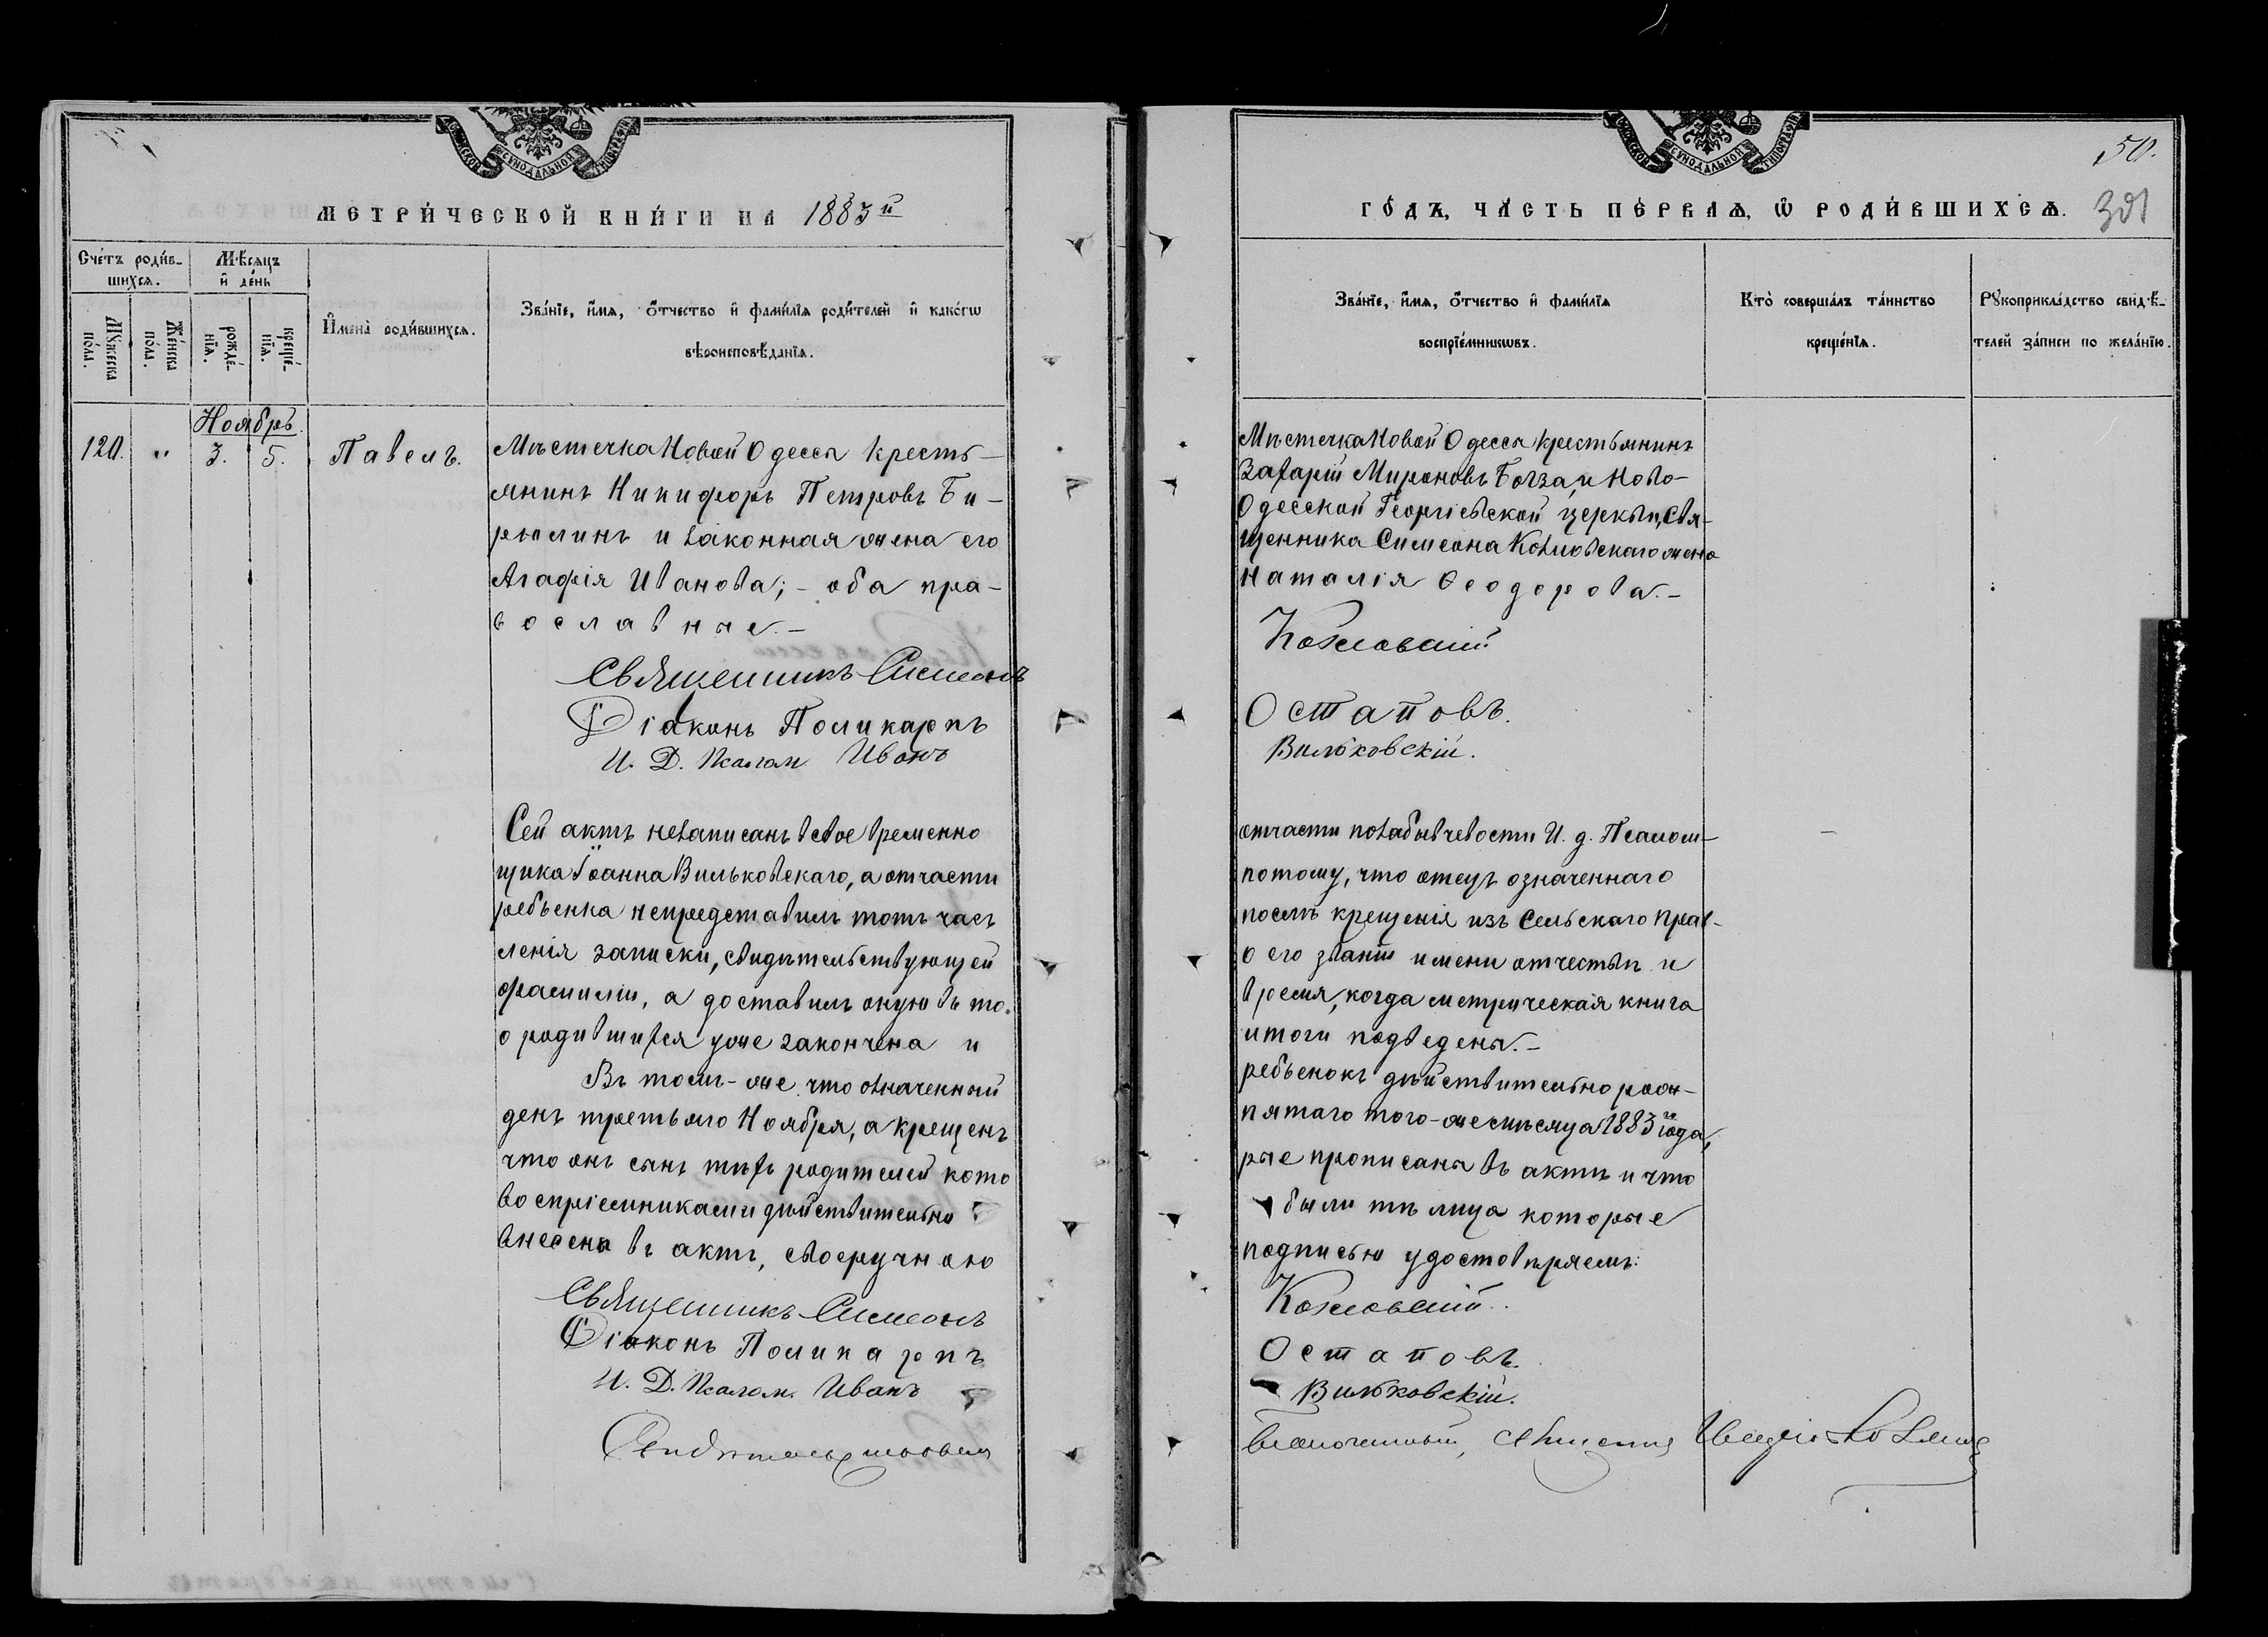 МЕТРИ́ЧЕСКОЙ КНИ́ГИ НА 1883й
Сче́тъ роди́в-
шихся.
Мѣ́сяцъ
и҆ де́нь
Мꙋ́жеска
по́ла.
Же́нска
по́ла.
рожде́-
нїя.
креще́-
нїя.
И҆мена̀ роди́вшихся.
Зва́нїе, и҆́мя, ѻ҆́тчество и҆ фами́лїя роди́телей и҆ како́гѡ
вѣроисповѣ́данїя.
Ноябрь.
120. " 3. 5. Павелъ.
Мѣстечка Новой Одессы кресть-
янинъ Никифоръ Петровъ Би-
рюлинъ и законная жена его
Агафія Иванова; - оба пра-
вославные. -
Священникъ Симеонъ
Діаконъ Поликарпъ
И. Д. Псалом Иванъ
Сей актъ незаписанъ всвое временно
щика Іоанна Вильковскаго, а отчасти
ребьенка непредставилъ тотъ часъ
ленія записки, свидѣтельствующей
фамиліи, а доставилъ оную въ то.
о родившихся уже закончена и
Въ томъ-же что означенный
денъ третьяго Ноября, а крещенъ
что онъ сынъ тѣхъ родителей кото
воспріемниками дѣйствительно
внесены въ актъ, своеручною
Священникъ Симеонъ
Діаконъ Поликарпъ
И. Д. Псалом. Иванъ
СѴНОДАЛЬНОЙ
ТИПОГРАФІИ
50.
ГО́ДЪ, ЧА́СТЬ ПЕ́РВАЯ, Ѡ҆ РОДИ́ВШИХСЯ.
Зва́нїе, и҆́мя, ѻ҆́тчество и҆ фами́лїя
воспрїе́мникѡвъ.
Кто̀ соверша́лъ та́инство
креще́нїя.
Рꙋкоприкла́дство свидѣ́-
телей за́писи по жела́нїю.
Мѣстечка Новой Одессы крестьянинъ
Захарій Мироновъ Богза, и Ново-
Одесской Георгіевской церкви, Свя-
щенника Симеона Козловскаго жена
Наталія Ѳеодорова. -
Козловскій
Остаповъ.
Вильковскій.
отчасти позабывчевости И. д. Псалом-
потому, что отецъ означеннаго
послѣ крещенія изъ Сельскаго Прав-
о его званіи имени отчествѣ и
время, когда метрическая книга
итоги подведены. -
ребьенокъ дѣйствительно рож-
пятаго того-же мѣсяца 1883го года,
рые прописаны въ актѣ и что
были тѣ лица которые
подписью удостовѣряемъ:
Козловскій.
Остаповъ.
Вильковскій.